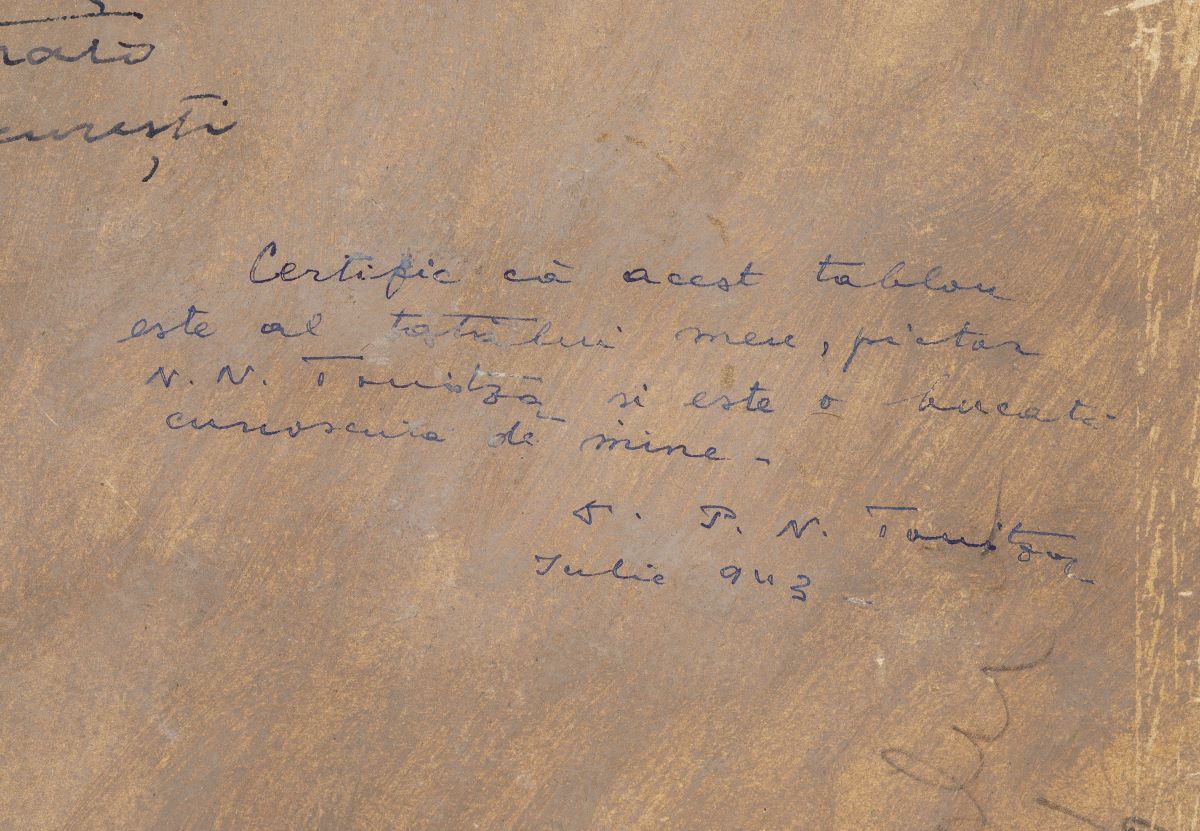 curești
Certific că acest tablou
este al tatălui meu, pictor
N. N. Tonitza si este o bucată
cunoscută de mine -
P. N. Tonitza
Iulie 943 -